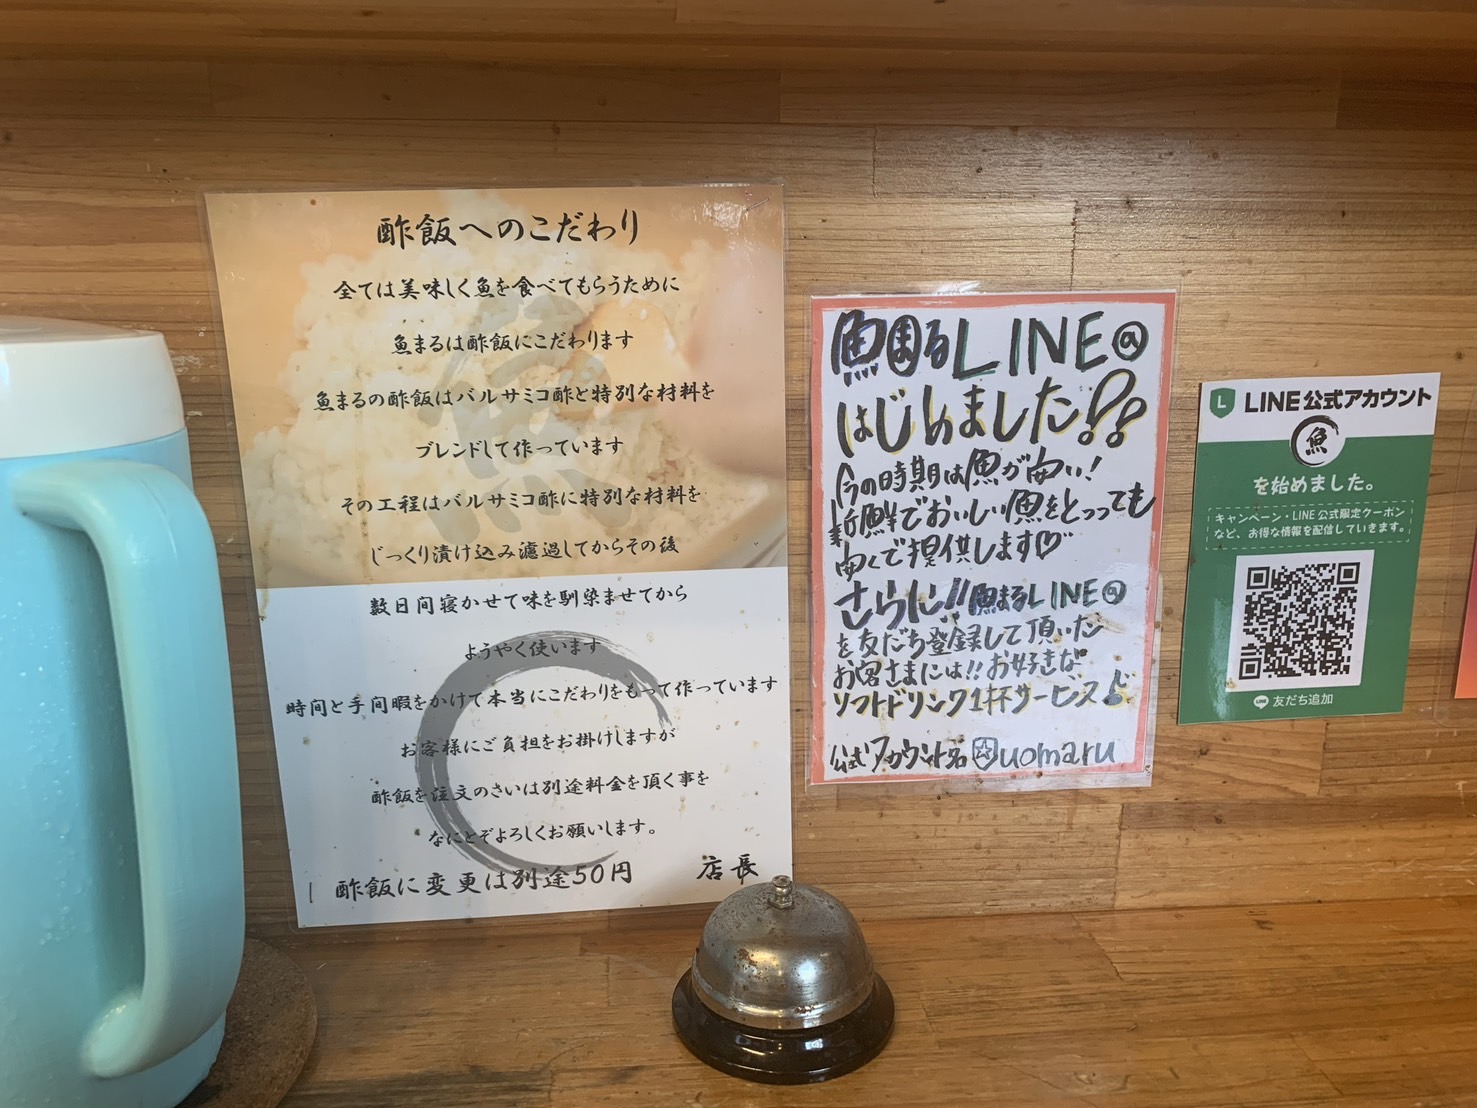 酢飯へのこだわり
全ては美味しく魚を食べてもらうために
魚まるは酢飯にこだわります
魚まるの酢飯はバルサミコ酢と特別な材料を
ブレンドして作っています
その工程はバルサミコ酢に特別な材料を
じっくり漬け込み濾過してからその後
数日間寝かせて味を馴染ませてから
ようやく使います
時間と手間暇をかけて本当にこだわりをもって作っています
お客様にご負担をお掛けしますが
酢飯を注文のさいは別途料金を頂く事を
なにとぞよろしくお願いします。
酢飯に変更は別途50円 店長
魚まるLINE@
はじめました!!
今の時期は魚が安い!
新鮮でおいしい魚をとっても
安くで提供します♡
さらに!!魚まるLINE@
を友だち登録して頂いた
お客さまには!!お好きな
ソフトドリンク1杯サービス♪
公式アカウント名 uomaru
L LINE公式アカウント
魚
を始めました。
キャンペーン・LINE公式限定クーポン
など、お得な情報を配信していきます。
LINE 友だち追加